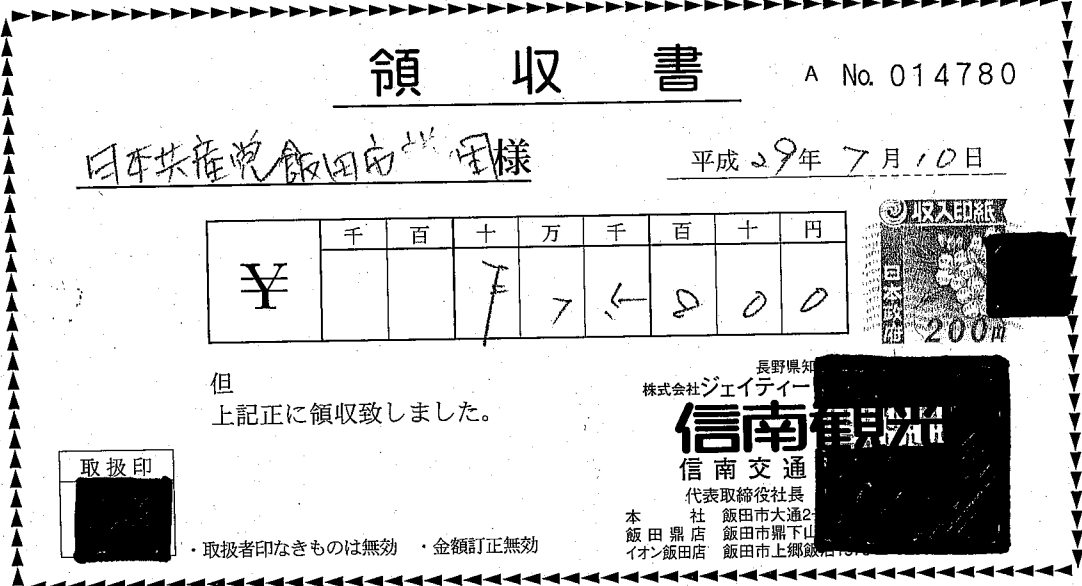 領収書
A No. 014780
日本共産党飯田市 団様
平成 29年 7月 10日
収入印紙
日本政府
200円
千 百 十 万 千 百 十 円
¥ 7 800
但
上記正に領収致しました。
長野県知
株式会社ジェイティー
信南観光
信南交通
代表取締役社長
本社 飯田市大通2
飯田鼎店 飯田市鼎下山
イオン飯田店 飯田市上郷飯沼
取扱印
・取扱者印なきものは無効 ・金額訂正無効